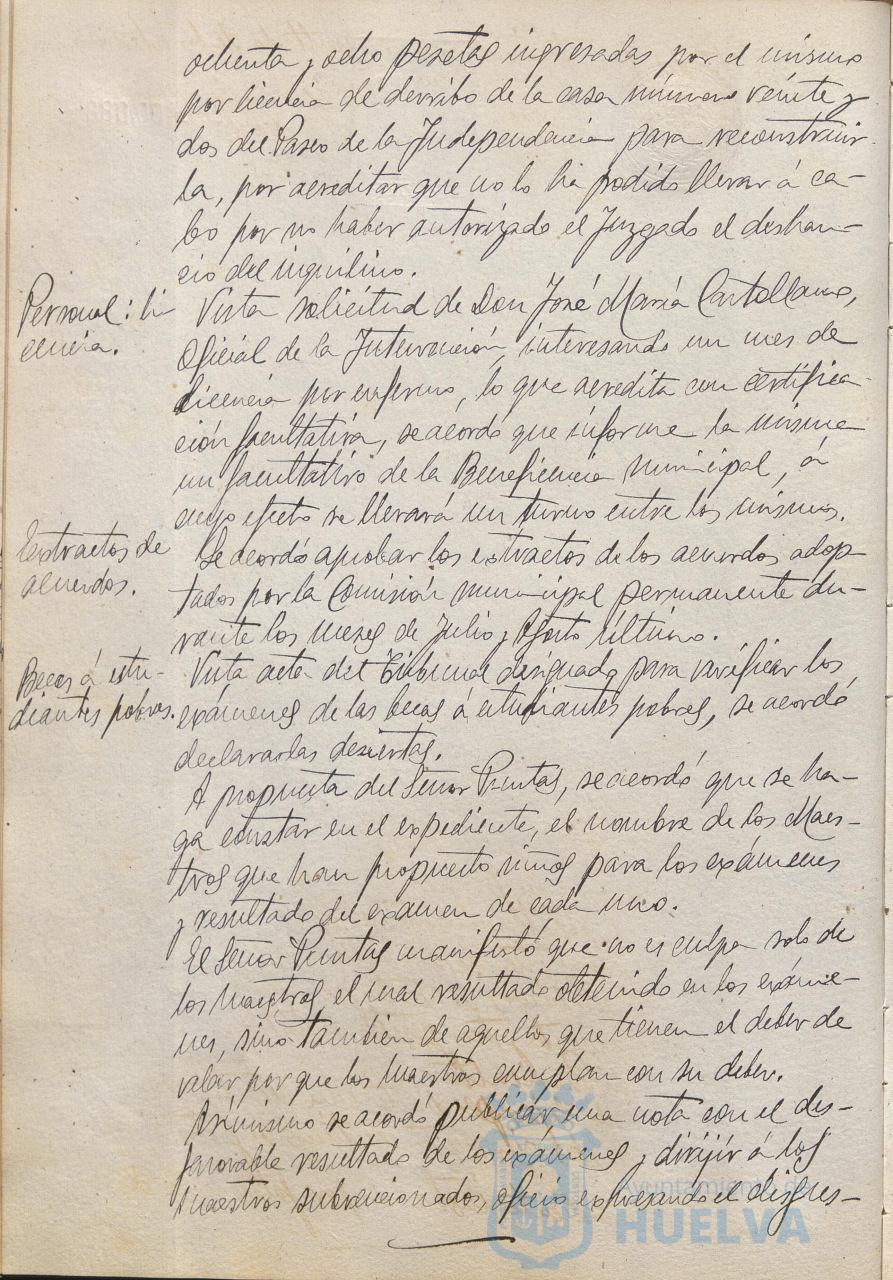 ochenta y ocho pesetas ingresadas por el mismo
por licencia de derribo de la casa número veinte y
dos del Paseo de la Independencia para reconstruir
la, por acreditar que no lo ha podido llevar á ca-
bo por no haber autorizado el Juzgado el deshau-
cio del inquilino.
Personal: li
cencia.
Vista solicitud de Don José María
Oficial de la Intervención, interesando un mes de
licencia por enfermo, lo que acredita con certifica-
ción facultativa, se acordó que informe la misma
un facultativo de la Beneficencia municipal, á
cuyo efecto se llevará un turno entre los mismos.
Extractos de
acuerdos.
Se acordó aprobar los extractos de los acuerdos adop-
tados por la Comisión municipal permanente du-
rante los meses de Julio y Agosto último.
Becas á estu-
diantes pobres.
Vista acta del Tribunal designado para verificar los
exámenes de las becas á estudiantes pobres, se acordó
declararlas desiertas.
A propuesta del Señor Puntas, se acordó que se ha-
ga constar en el expediente, el nombre de los Maes-
tros que han propuesto niños para los exámenes
y resultado del examen de cada uno.
El Señor Puntas manifestó que no es culpa solo de
los maestros el mal resultado obtenido en los exáme-
nes, sino también de aquellos que tienen el deber de
velar por que los maestros cumplan con su deber.
Asimismo se acordó publicar una nota con el des-
favorable resultado de los exámenes y dirijir á los
maestros subvencionados, oficio expresando el disgus-
Ayuntamiento de
HUELVA